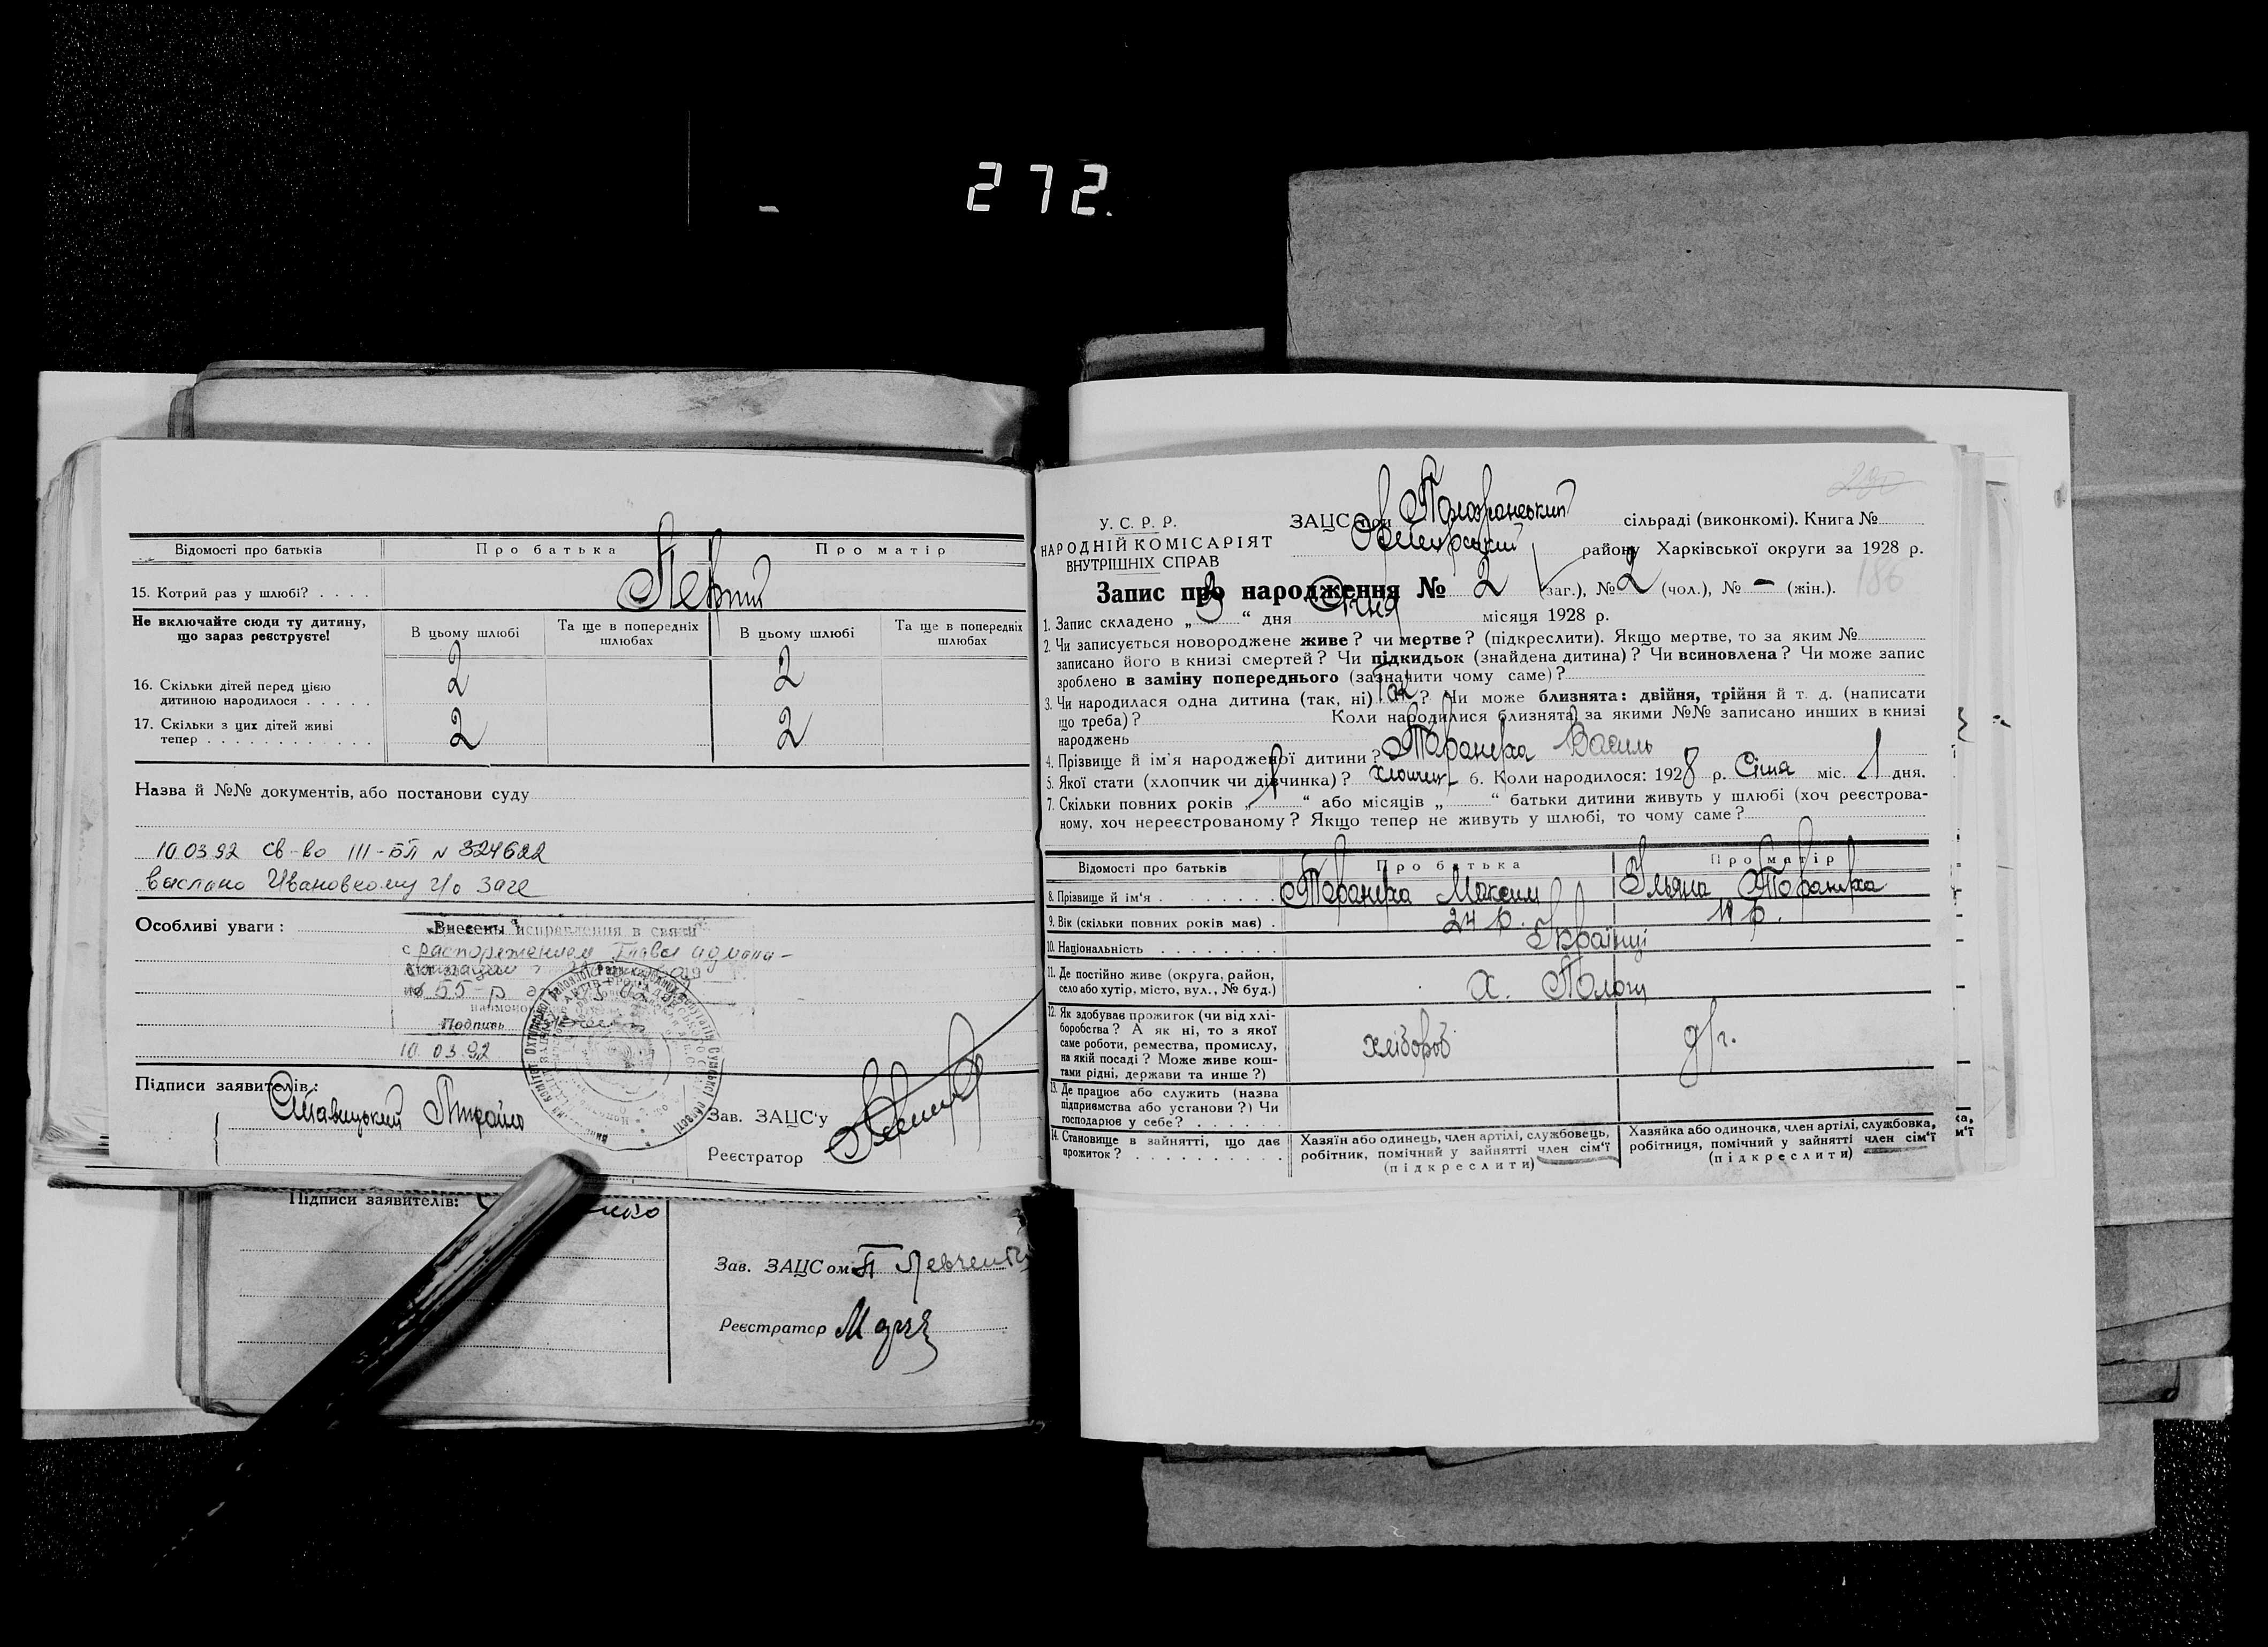 272.
Відомості про батьків
Про батька
Про матір
15. Котрий раз у шлюбі? . . . .
Первий
Не включайте сюди ту дитину, що зараз реєструєте!
В цьому шлюбі
Та ще в попередніх шлюбах
В цьому шлюбі
Та ще в попередніх шлюбах
16. Скільки дітей перед цією дитиною народилося . . . . .
2
2
17. Скільки з цих дітей живі тепер . . . . . . . . . . . .
2
2
Назва й №№ документів, або постанови суду
10.03.92 св-во III-БП N 324622
выслано Ивановкому г/о загс
Особливі уваги :
Внесены исправления в связи
с распоряжением Главы админи-
№ 55-р
Подпись
10.03.92
Підписи заявителів :
Ставицький
Зав. ЗАЦС'у
Реєстратор
Підписи заявителів:
Зав. ЗАЦСом
Реєстратор
У. С. Р. Р.
НАРОДНІЙ КОМІСАРІЯТ
ВНУТРІШНІХ СПРАВ
230
ЗАЦС при
сільраді (виконкомі). Книга №
району Харківської округи за 1928 р.
186
Запис про народження № 2 (заг.), № 2 (чол.), № – (жін.).
1. Запис складено „ 3 “ дня Січня місяця 1928 р.
2. Чи записується новороджене живе? чи мертве? (підкреслити). Якщо мертве, то за яким №
записано його в книзі смертей? Чи підкидьок (знайдена дитина)? Чи всиновлена? Чи може запис
зроблено в заміну попереднього (зазначити чому саме)?
3. Чи народилася одна дитина (так, ні) Так ? Чи може близнята: двійня, трійня й т. д. (написати
що треба)? Коли народилися близнята, за якими №№ записано инших в книзі
народжень
4. Прізвище й ім'я народженої дитини? Тарануха Василь
5. Якої стати (хлопчик чи дівчинка)? хлопчик 6. Коли народилося: 1928 р. Січня міс. 1 дня.
7. Скільки повних років „ “ або місяців „ “ батьки дитини живуть у шлюбі (хоч реєстрова-
ному, хоч нереєстрованому? Якщо тепер не живуть у шлюбі, то чому саме?
Відомості про батьків
Про батька
Про матір
8. Прізвище й ім'я . . . . . . . .
Тарануха Максим
Ульяна Тарануха
9. Вік (скільки повних років має) .
24 р.
19 р.
10. Національність . . . . . . . .
Українці
11. Де постійно живе (округа, район,
село або хутір, місто, вул., № буд.)
х. Пологи
12. Як здобуває прожиток (чи від хлі-
боробства? А як ні, то з якої
саме роботи, ремества, промислу,
на якій посаді? Може живе кош-
тами рідні, держави та инше?)
хлібороб
д/г.
13. Де працює або служить (назва
підприємства або установи?) Чи
господарює у себе? . . . . . .
14. Становище в зайнятті, що дає
прожиток? . . . . . . . . . .
Хазяїн або одинець, член артілі, службовець,
робітник, помічний у зайнятті член сім'ї
(підкреслити)
Хазяйка або одиночка, член артілі, службовка,
робітниця, помічний у зайнятті член сім'ї
(підкреслити)